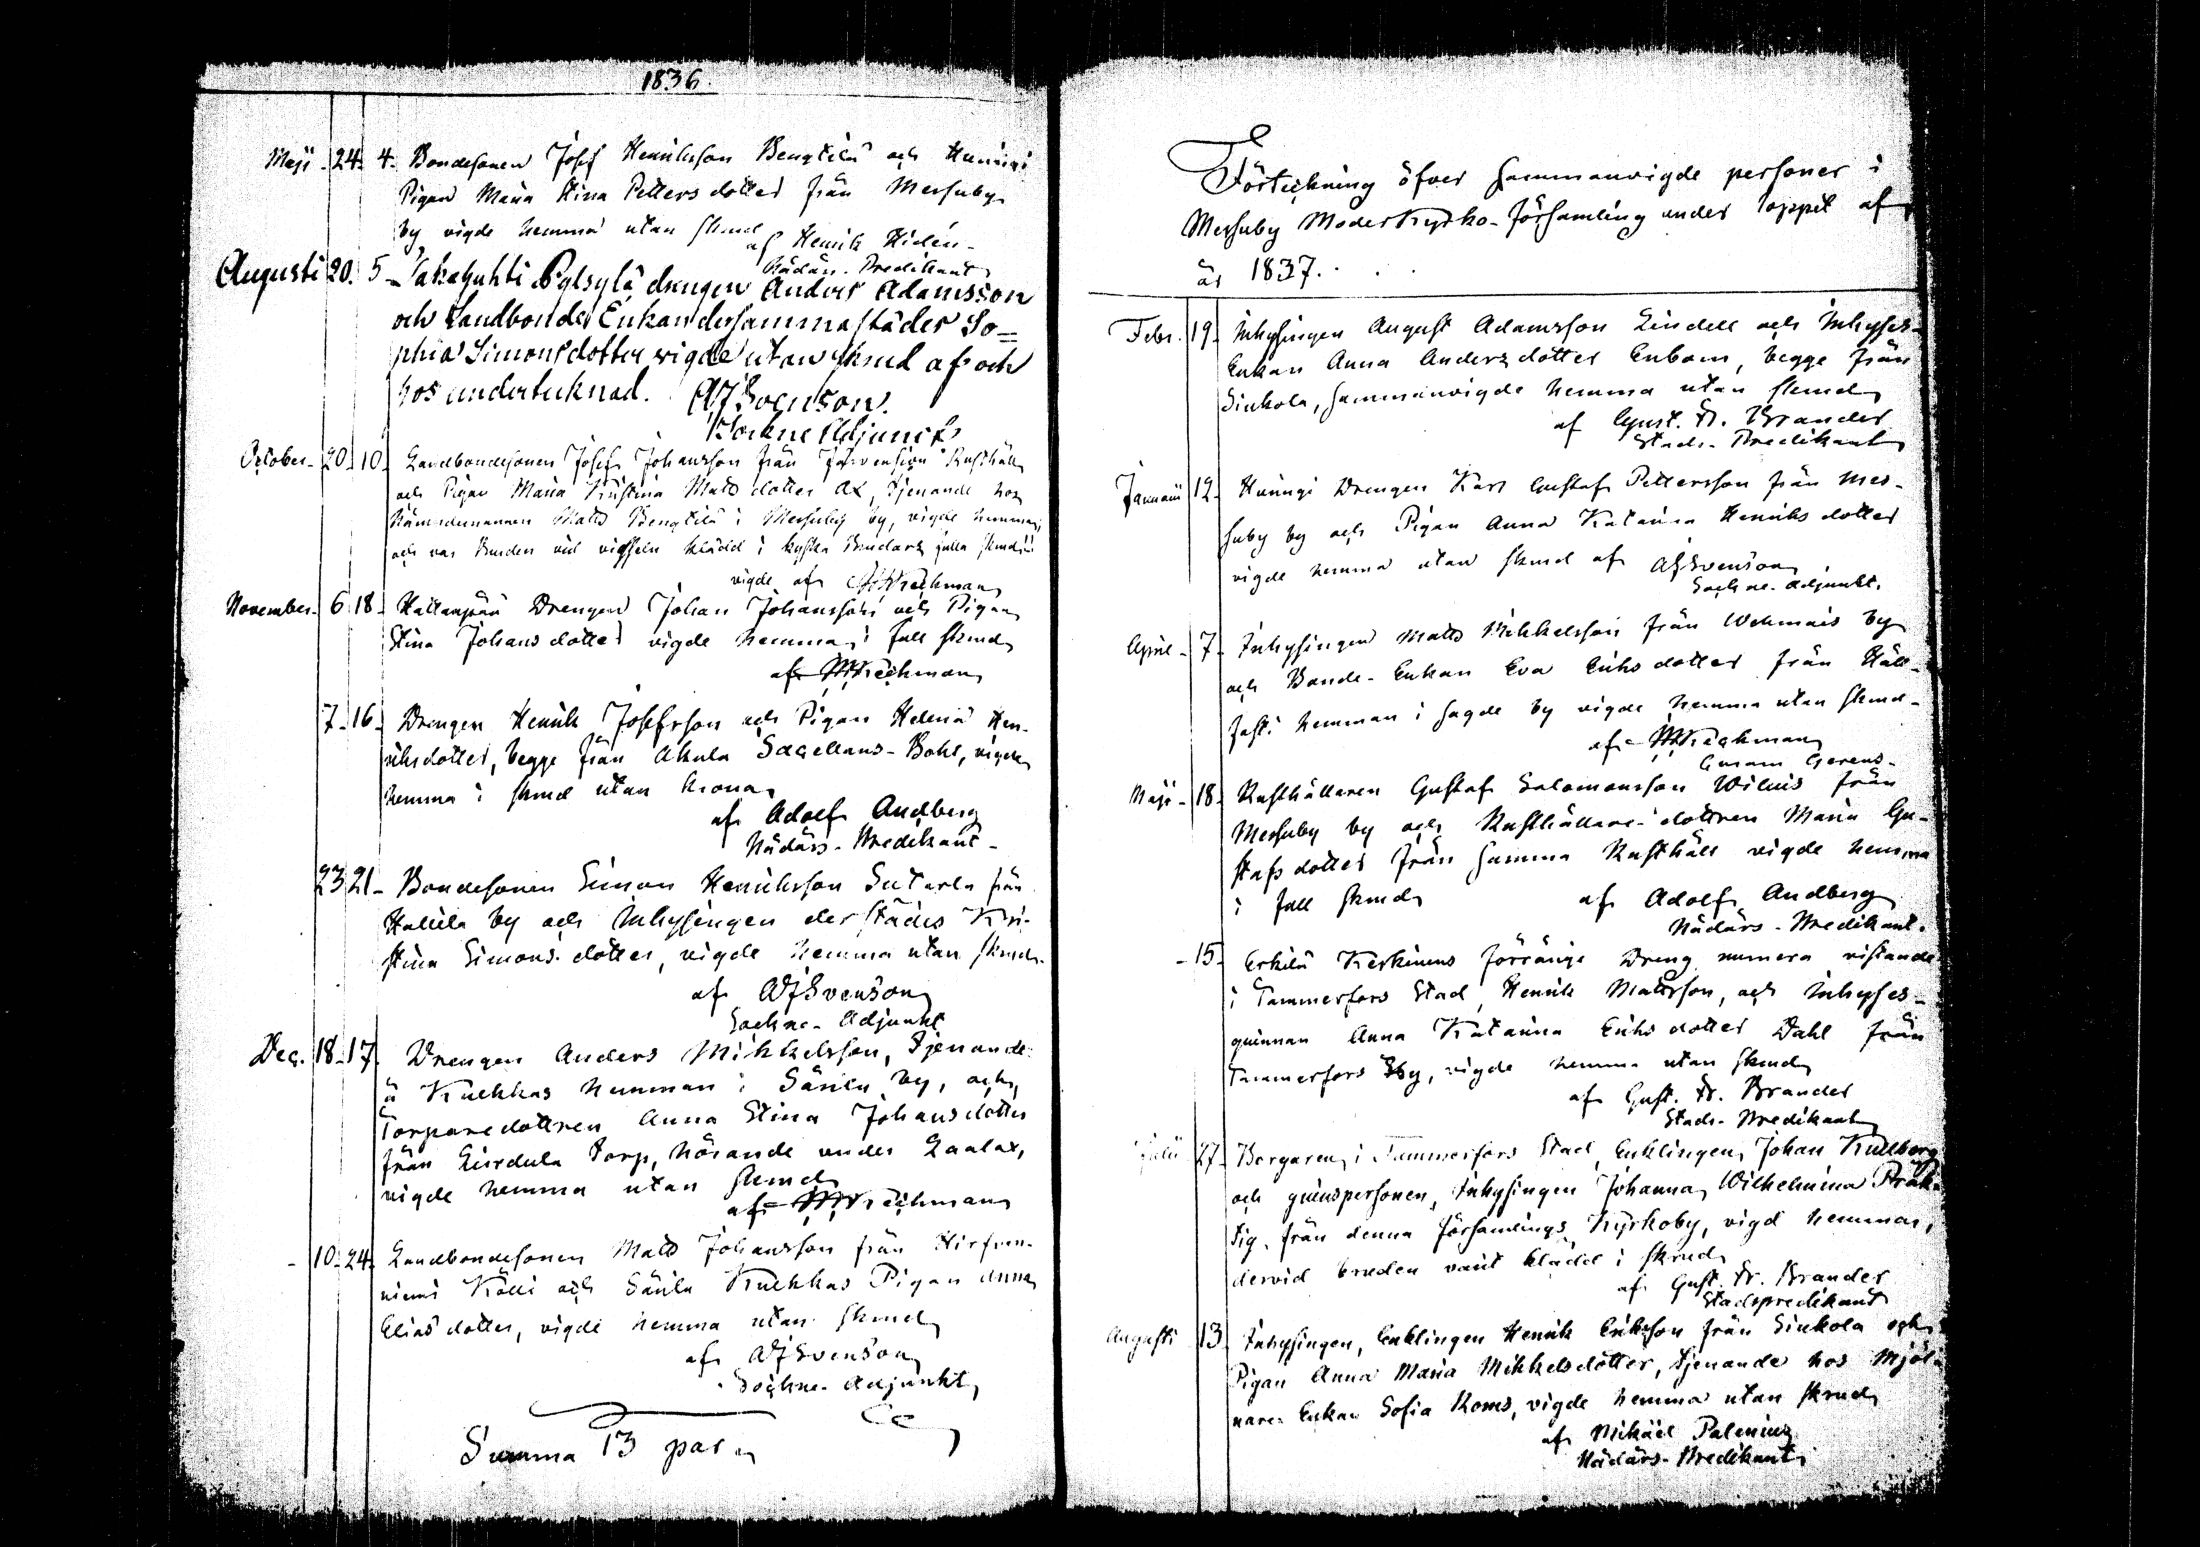 1836.
Maji - 24. 4. Bondesonen Josef Henriksson Bengtilä och Huningi
Pigan Maria Stina Pettersdotter från Messuby
by, vigde hemma utan skrud
af Henrik Hidén -
Nådårs-Predikant
Augusti 20. 5 - Takahuhti Pylsylä drengen Anders Adamsson
och Landbonde Enkan dersammastädes So=
phia Simonsdotter vigde utan skrud af och
hos undertecknad. AJSvenson.
Sockne Adjunct
October - 20. 10. Landbondesonen Josef Johansson från Järvensivu Rusthåll
och Pigan Maria Kristina Matsdotter Ax, tjenande hos
Nämndemannen Matts Bengtilä i Messuby by, vigde hemma,
och var Bruden vid vigseln klädd i kyska Brudars fulla skrud
vigde af Wreghman
November - 6. 18. Kattanpää Drengen Johan Johansson och Pigan
Stina Johansdotter vigde hemma i full skrud
af Wreghman
7. 16. Drengen Henrik Josefsson och Pigan Helena Hen-
riksdotter, begge från Akula Sacellans-Bohl, vigde
hemma i skrud utan krona
af Adolf Andberg
Nådårs-Predikant -
23 21 - Bondesonen Simon Henriksson Sutarla från
Hallila by och Inhysingen derstädes Kri-
stina Simonsdotter, vigde hemma utan skrud.
af AJSvenson
Sockne-Adjunkt
Dec. 18. 17. Drengen Anders Mikkelsson, tjenande
å Kuckkas hemman i Särila by, och
Torparedottren Anna Stina Johansdotter
från torp, hörande under Laalax,
vigde hemma utan skrud
af Wreghman
- 10. 24. Landbondesonen Matts Johansson från Hirfven-
niemi Kölli och Särila Kuckkas Pigan Anna
Eliasdotter, vigde hemma utan skrud
af AJSvenson
Sockne-Adjunkt,
Summa 13 par
Förteckning öfver sammanvigde personer i
Messuby Moder Kyrko-församling under loppet af
år 1837.
Febr. 19. Inhysingen August Adamsson Lindell och Inhyses-
Enkan Anna Andersdotter Enbom, begge från
Sinkola, sammanvigde hemma utan skrud
af Gust. Fr. Brander
Stads-Predikant
Januarii 12. Huningi Drengen Karl Gustaf Pettersson från Mes-
suby by och Pigan Anna Katarina Henriksdotter
vigde hemma utan skrud af AJSvenson
Sockne-adjunkt.
April - 7. Inhysingen Matts Mikkelsson från Wehmais by
och Bonde-Enkan Eva Eriksdotter från
hemman i sagde by vigde hemma utan skrud -
af Wreghman
Maji - 18. Rusthållaren Gustaf Salomonsson Wiluis från
Messuby by och Rusthållare-dottren Maria Gu-
stafsdotter från samma Rusthåll vigde hemma
i full skrud af Adolf Andberg
Nådårs-Predikant.
- 15. Erkilä Keskinens förränge Dreng numera vistande
i Tammerfors Stad, Henrik Mattsson, och Inhyses-
quinnan Anna Katarina Eriksdotter Dahl från
Tammerfors By, vigde hemma utan skrud
af Gust. Fr. Brander
Stads-Predikant
Julii 27. Borgaren i Tammerfors Stad, Enklingen, Johan Kullberg
och quinspersonen, Inhysingen Johanna Wilhelmina Präk-
tig, från denna församlings Kyrkoby, vigd hemma,
dervid bruden varit klädd i skrud
af Gust. Fr. Brander
Stadspredikant
Augusti 13. Inhysingen, Enklingen Henrik Eriksson från Sinkola och
Pigan Anna Maria Mikkelsdotter, tjenande hos Mjöl-
nare Enkan Sofia Roms, vigde hemma utan skrud
af Mikäel Palenius
Nådårs-Predikant